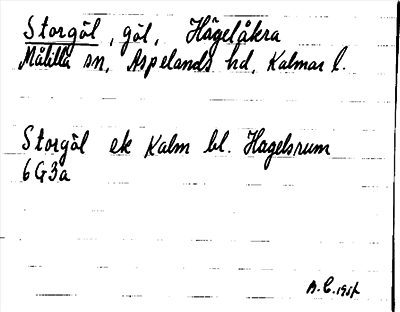 Storgöl, göl, Hägelåkra
Målilla sn, Aspelands hd, Kalmar l.
Storgöl ek Kalm bl. Hagelsrum
6G3a
A.C.